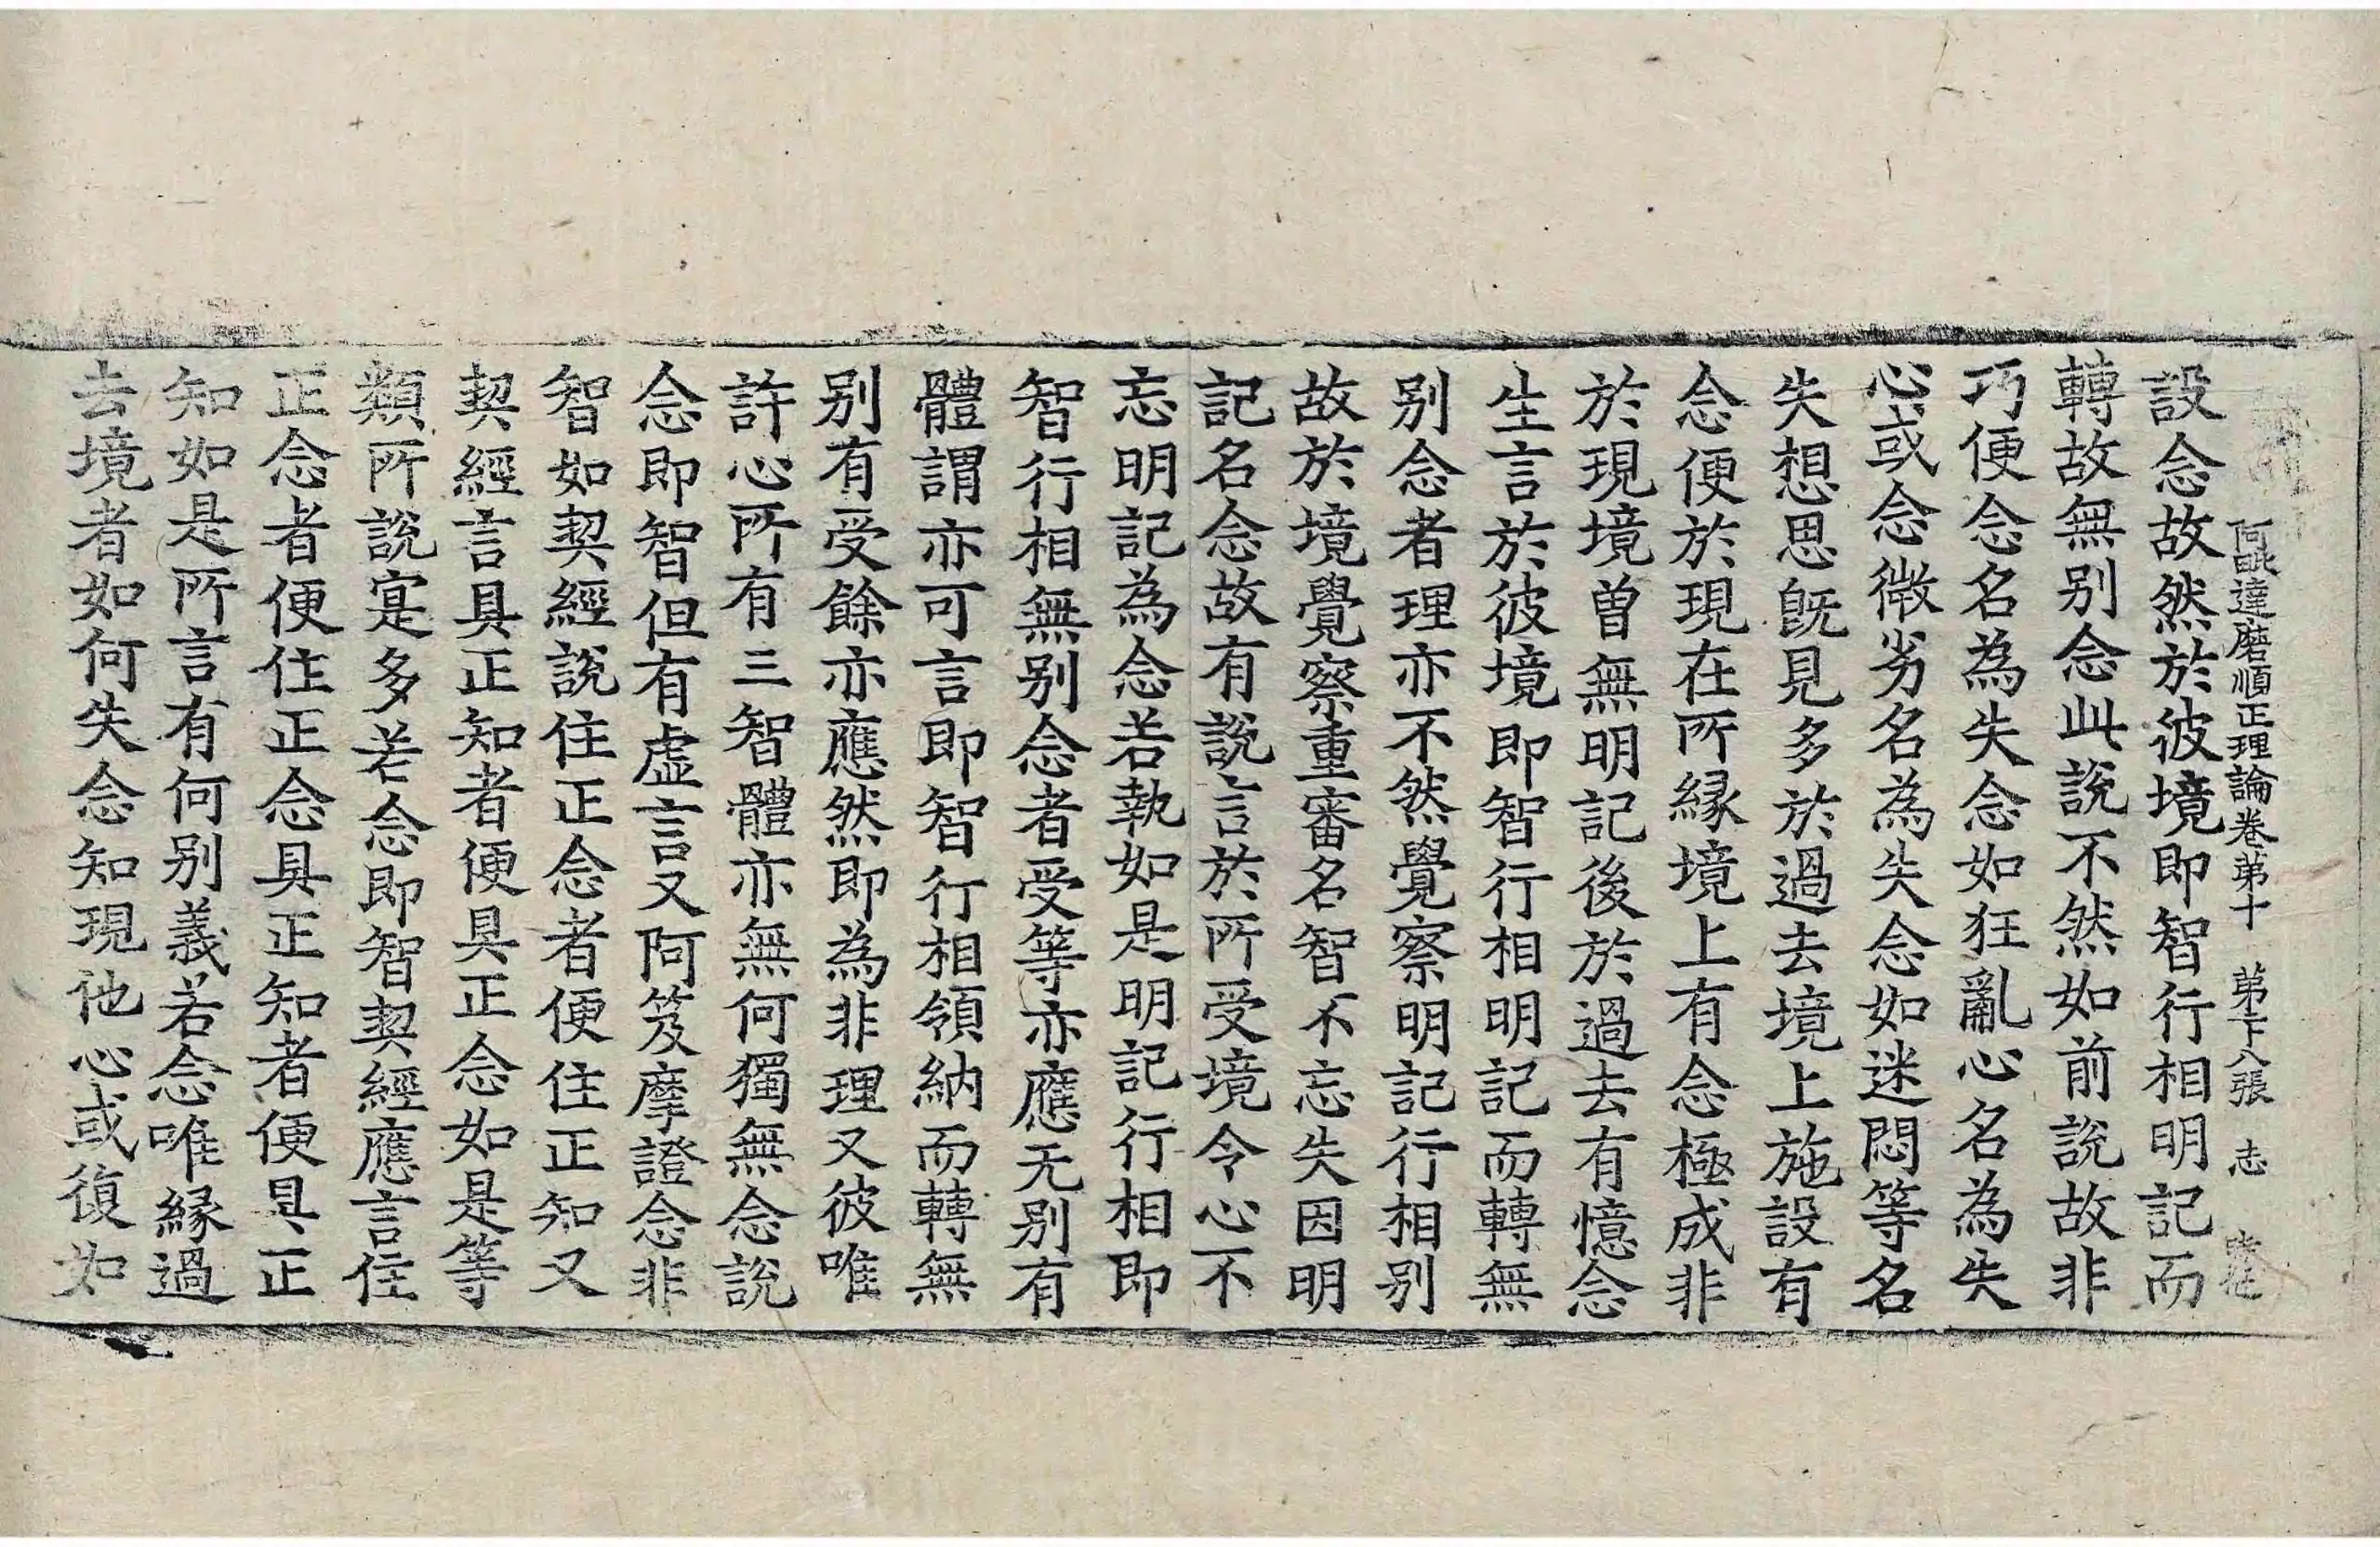 阿毗達磨順正理論卷第十　第下八張　志
設念故然於彼境即智行相明記而
轉故無别念此說不然如前說故非
巧便念名為失念如狂亂心名為失
心或念微劣名為失念如迷悶等名
失想思旣見多於過去境上施設有
念便於現在所緣境上有念極成非
於現境曾無明記後於過去有憶念
生言於彼境即智行相明記而轉無
别念者理亦不然覺察明記行相别
故於境覺察重審名智不忘失因明
記名念故有說言於所受境令心不
忘明記為念若執如是明記行相即
智行相無别念者受等亦應无别有
體謂亦可言即智行相領納而轉無
别有受餘亦應然即為非理又彼唯
許心所有三智體亦無何獨無念說
念即智但有虛言又阿笈摩證念非
智如契經說住正念者便住正知又
契經言具正知者便具正念如是等
類所說寔多若念即智契經應言住
正念者便住正念具正知者便具正
知如是所言有何别義若念唯緣過
去境者如何失念知現他心或復如